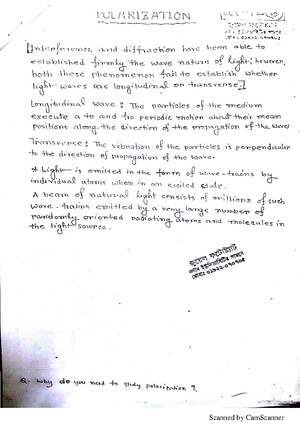 POLARIZATION
[Interference and diffraction have been able to
established firmly the wave nature of light; however,
both these phenomenon fail to establish whether
light-waves are longitudinal or transverse.]
Longitudinal wave: The particles of the medium
execute a to and fro periodic motion about their mean
positions along the direction of the propagation of the wave.
Transverse: The vibration of the particles is perpendicular
to the direction of propagation of the wave.
* Light is emitted in the form of wave-trains by
individual atoms when in an excited state.
A beam of natural light consists of millions of such
wave-trains emitted by a very large number of
randomly oriented radiating atoms and molecules in
the light source.
Q. Why do you need to study polarization?
Scanned by CamScanner